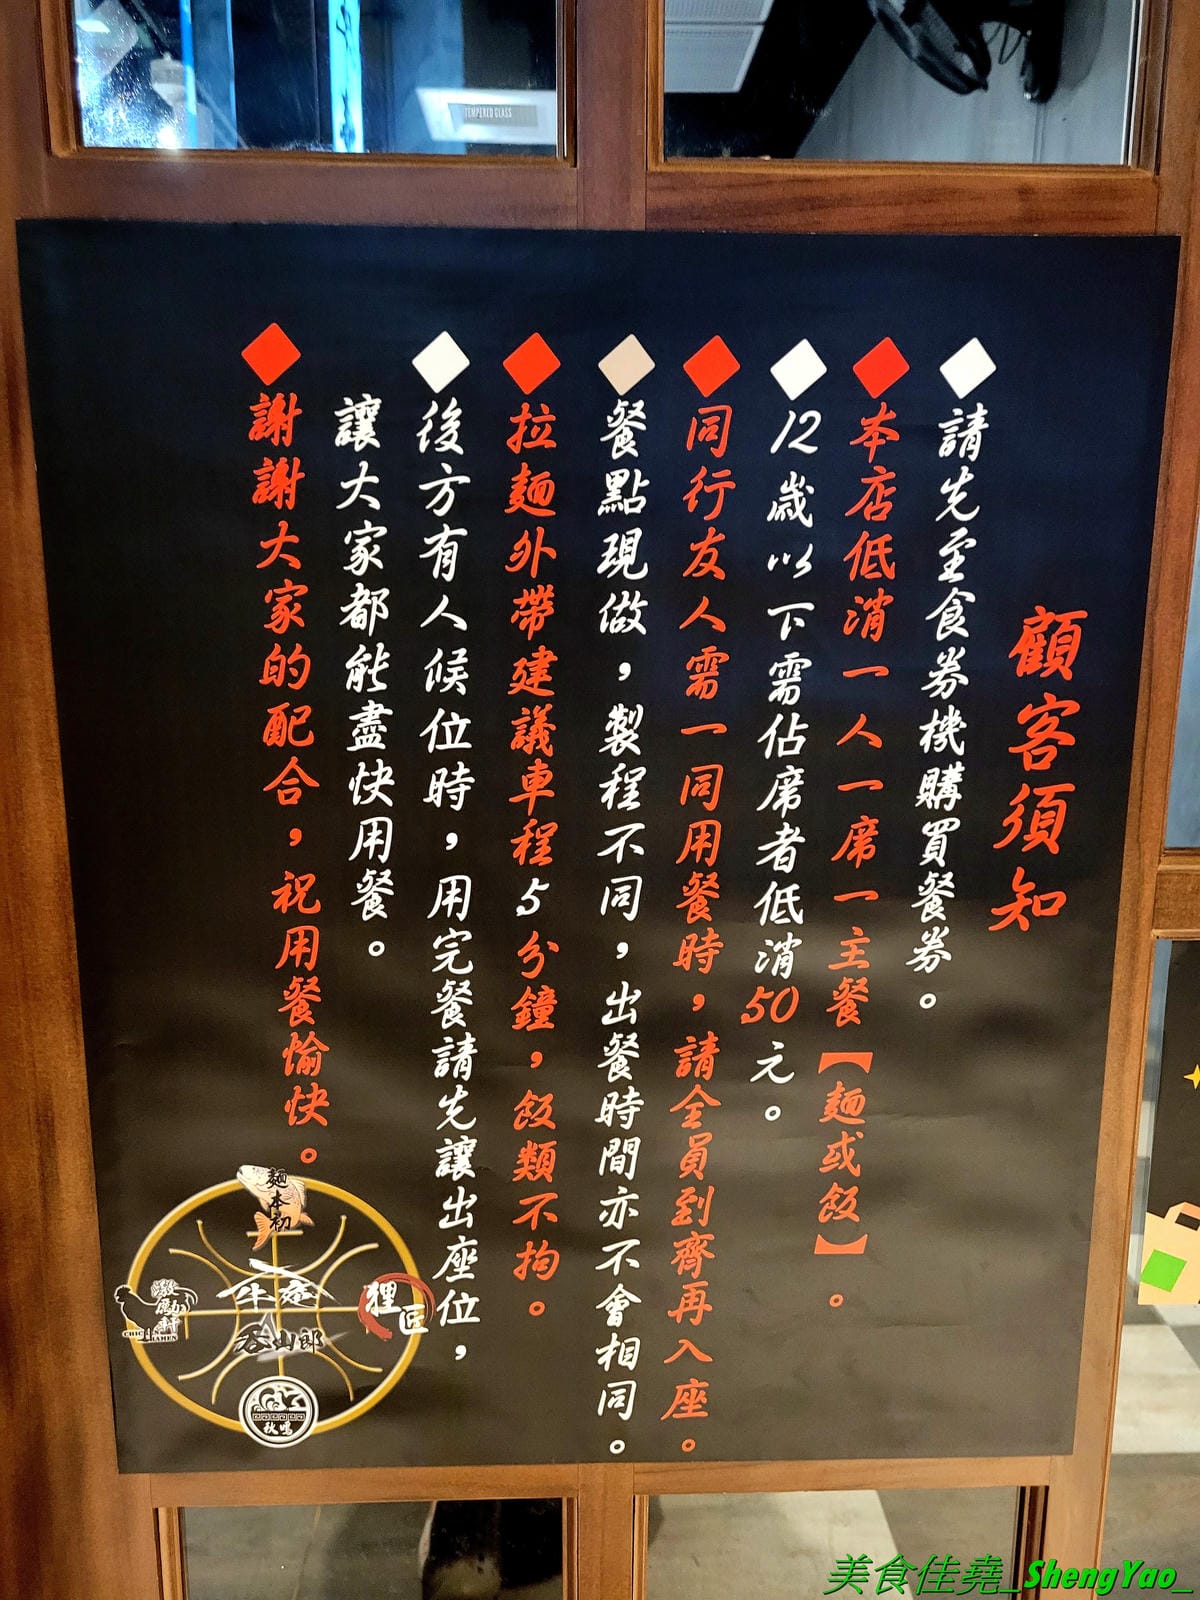 TEMPERED GLASS
顧客須知
請先至食券機購買餐券。
本店低消一人一席一主餐【麵或飯】。
12歲以下需佔席者低消50元。
同行友人需一同用餐時，請全員到齊再入座。
餐點現做，製程不同，出餐時間亦不會相同。
拉麵外帶建議車程5分鐘，飯類不拘。
後方有人候位時，用完餐請先讓出座位，
讓大家都能盡快用餐。
謝謝大家的配合，祝用餐愉快。
麵本初
激勵軒
CHICKEN RAMEN
牛菴
吞山郎
狸匠
秋鳴
美食佳堯_ShengYao_